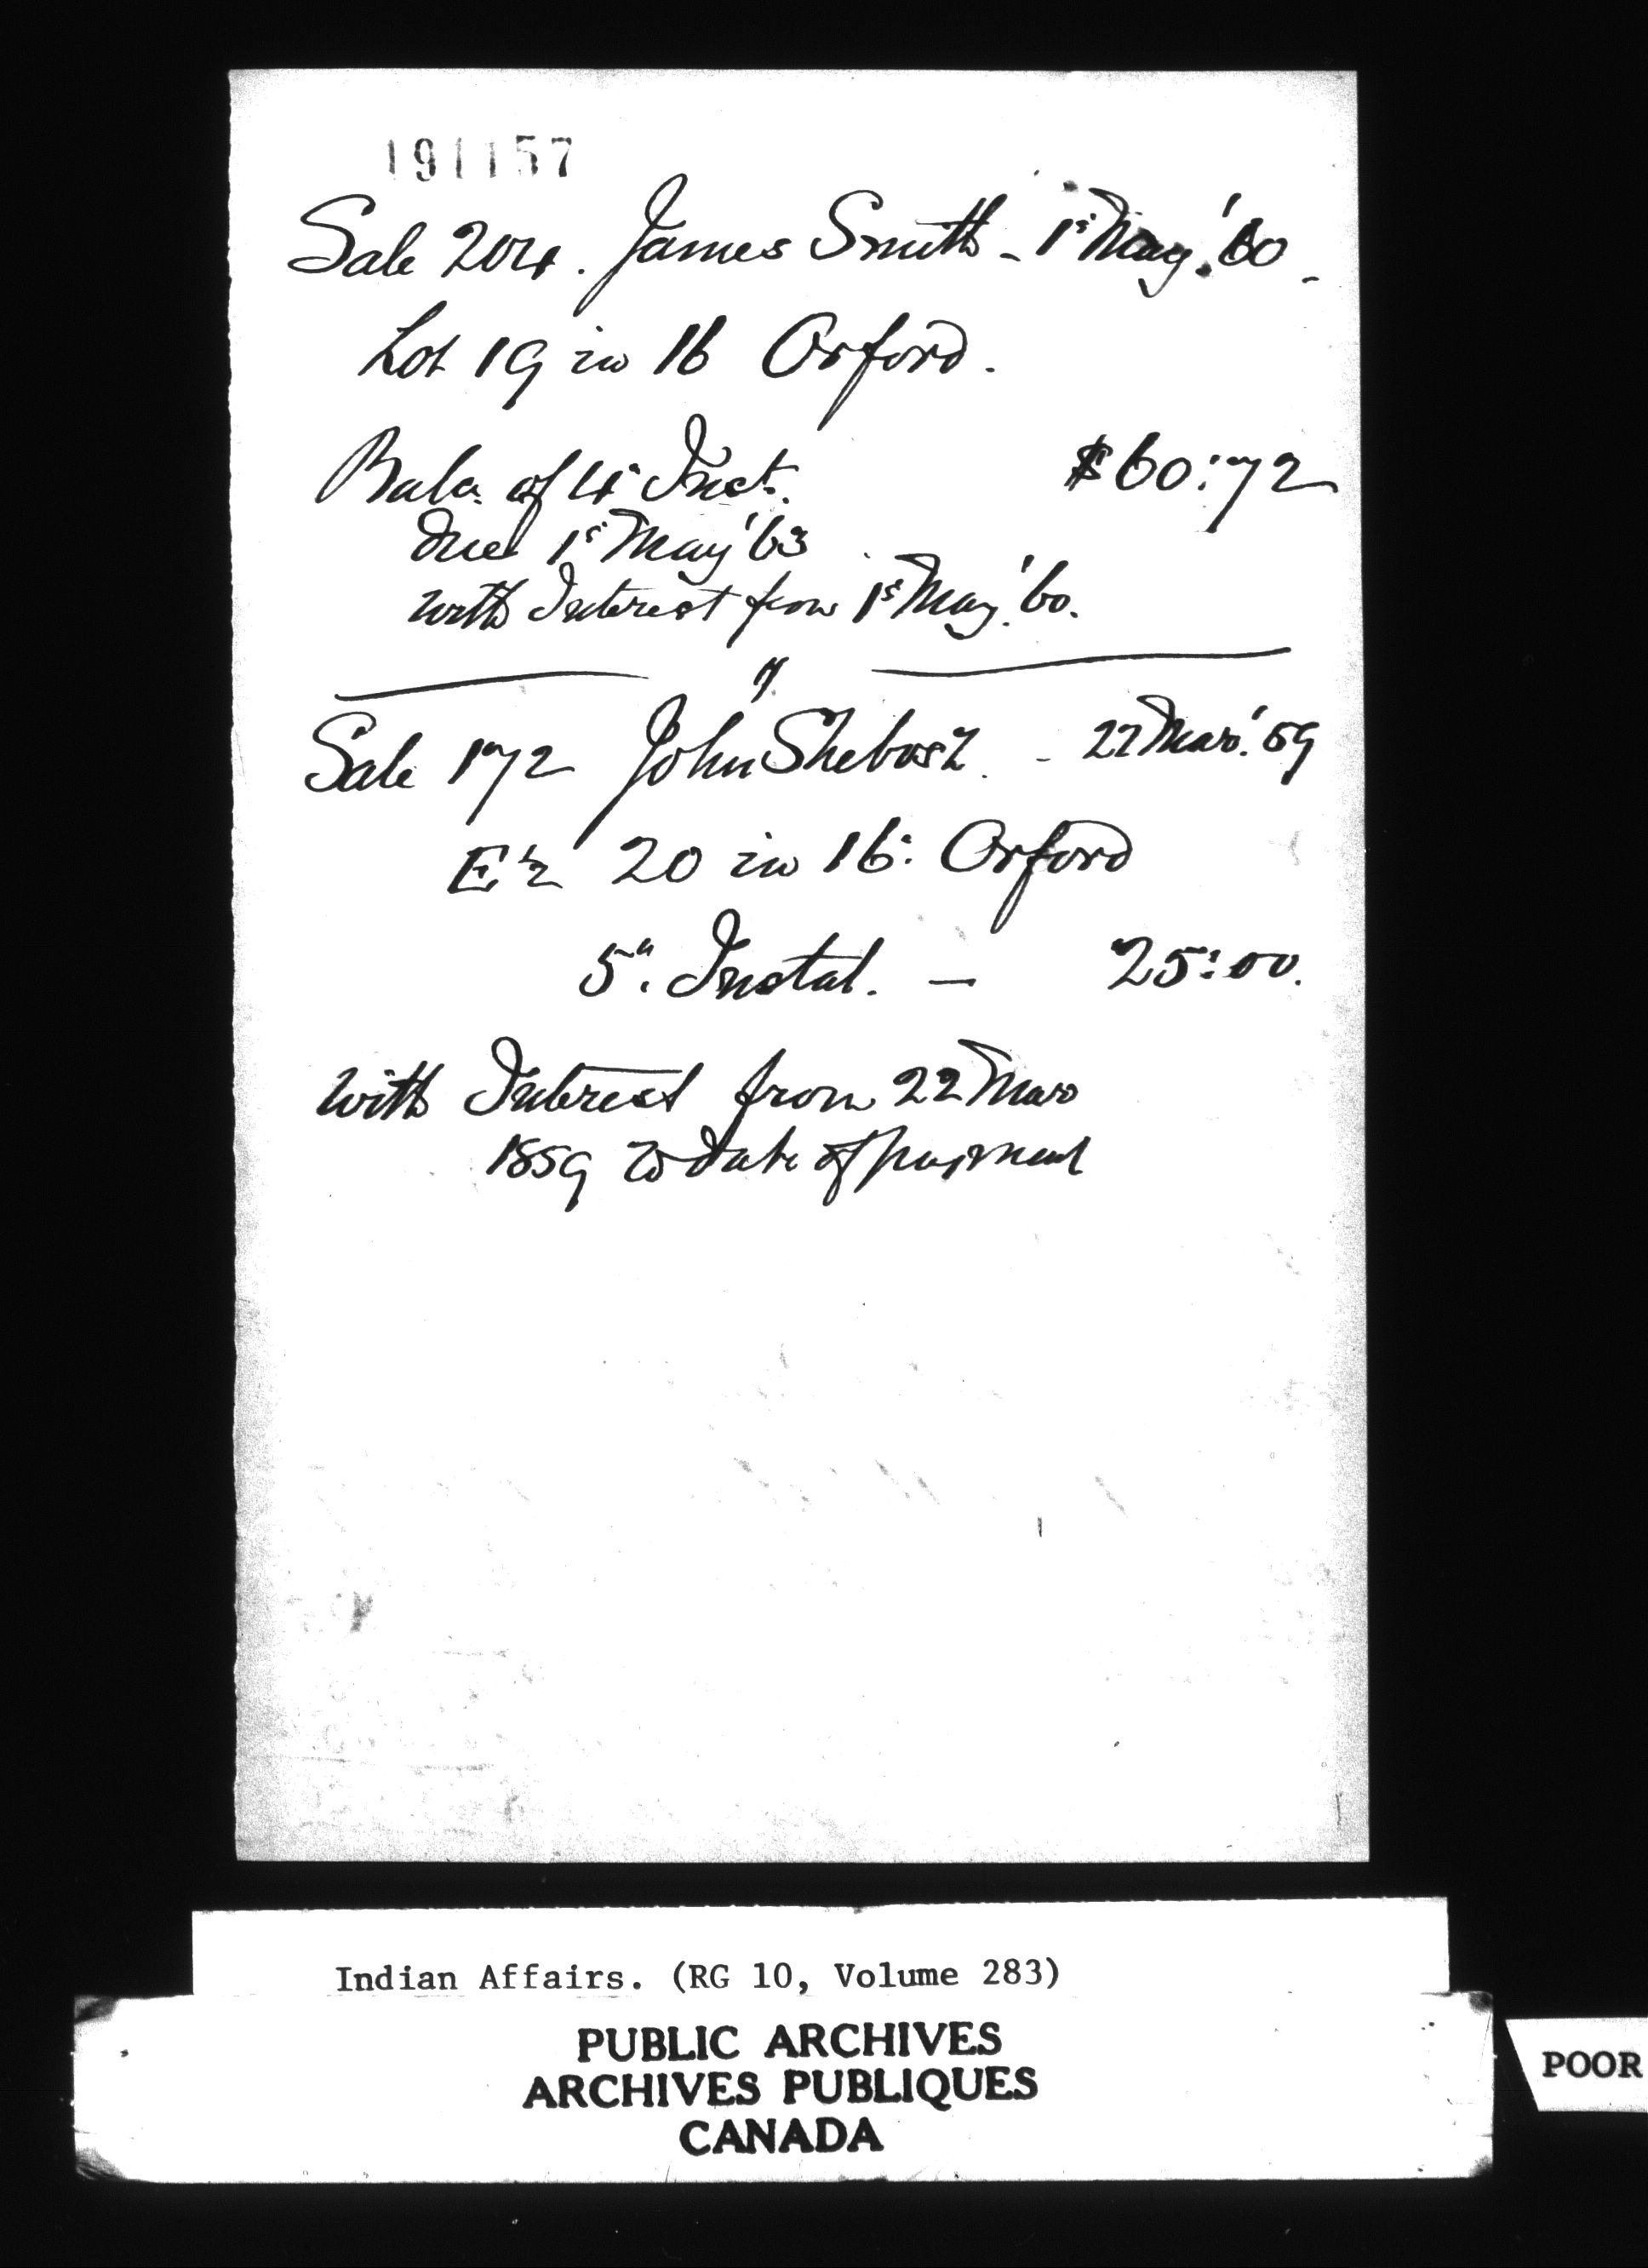 191157
Sale 204. James Smith - 1st May '60 -
Lot 19 in 16 Orford.
Bala. of 4th Inst. $60:72
due 1st May '63
with Interest from 1st May '60.
Sale 172 John - 22 Mar. '59
E ½ 20 in 16: Orford
5th. Instal. - 25:00.
with Interest from 22 Mar
1859 to date of payment
Indian Affairs. (RG 10, Volume 283)
PUBLIC ARCHIVES
ARCHIVES PUBLIQUES
CANADA
POOR